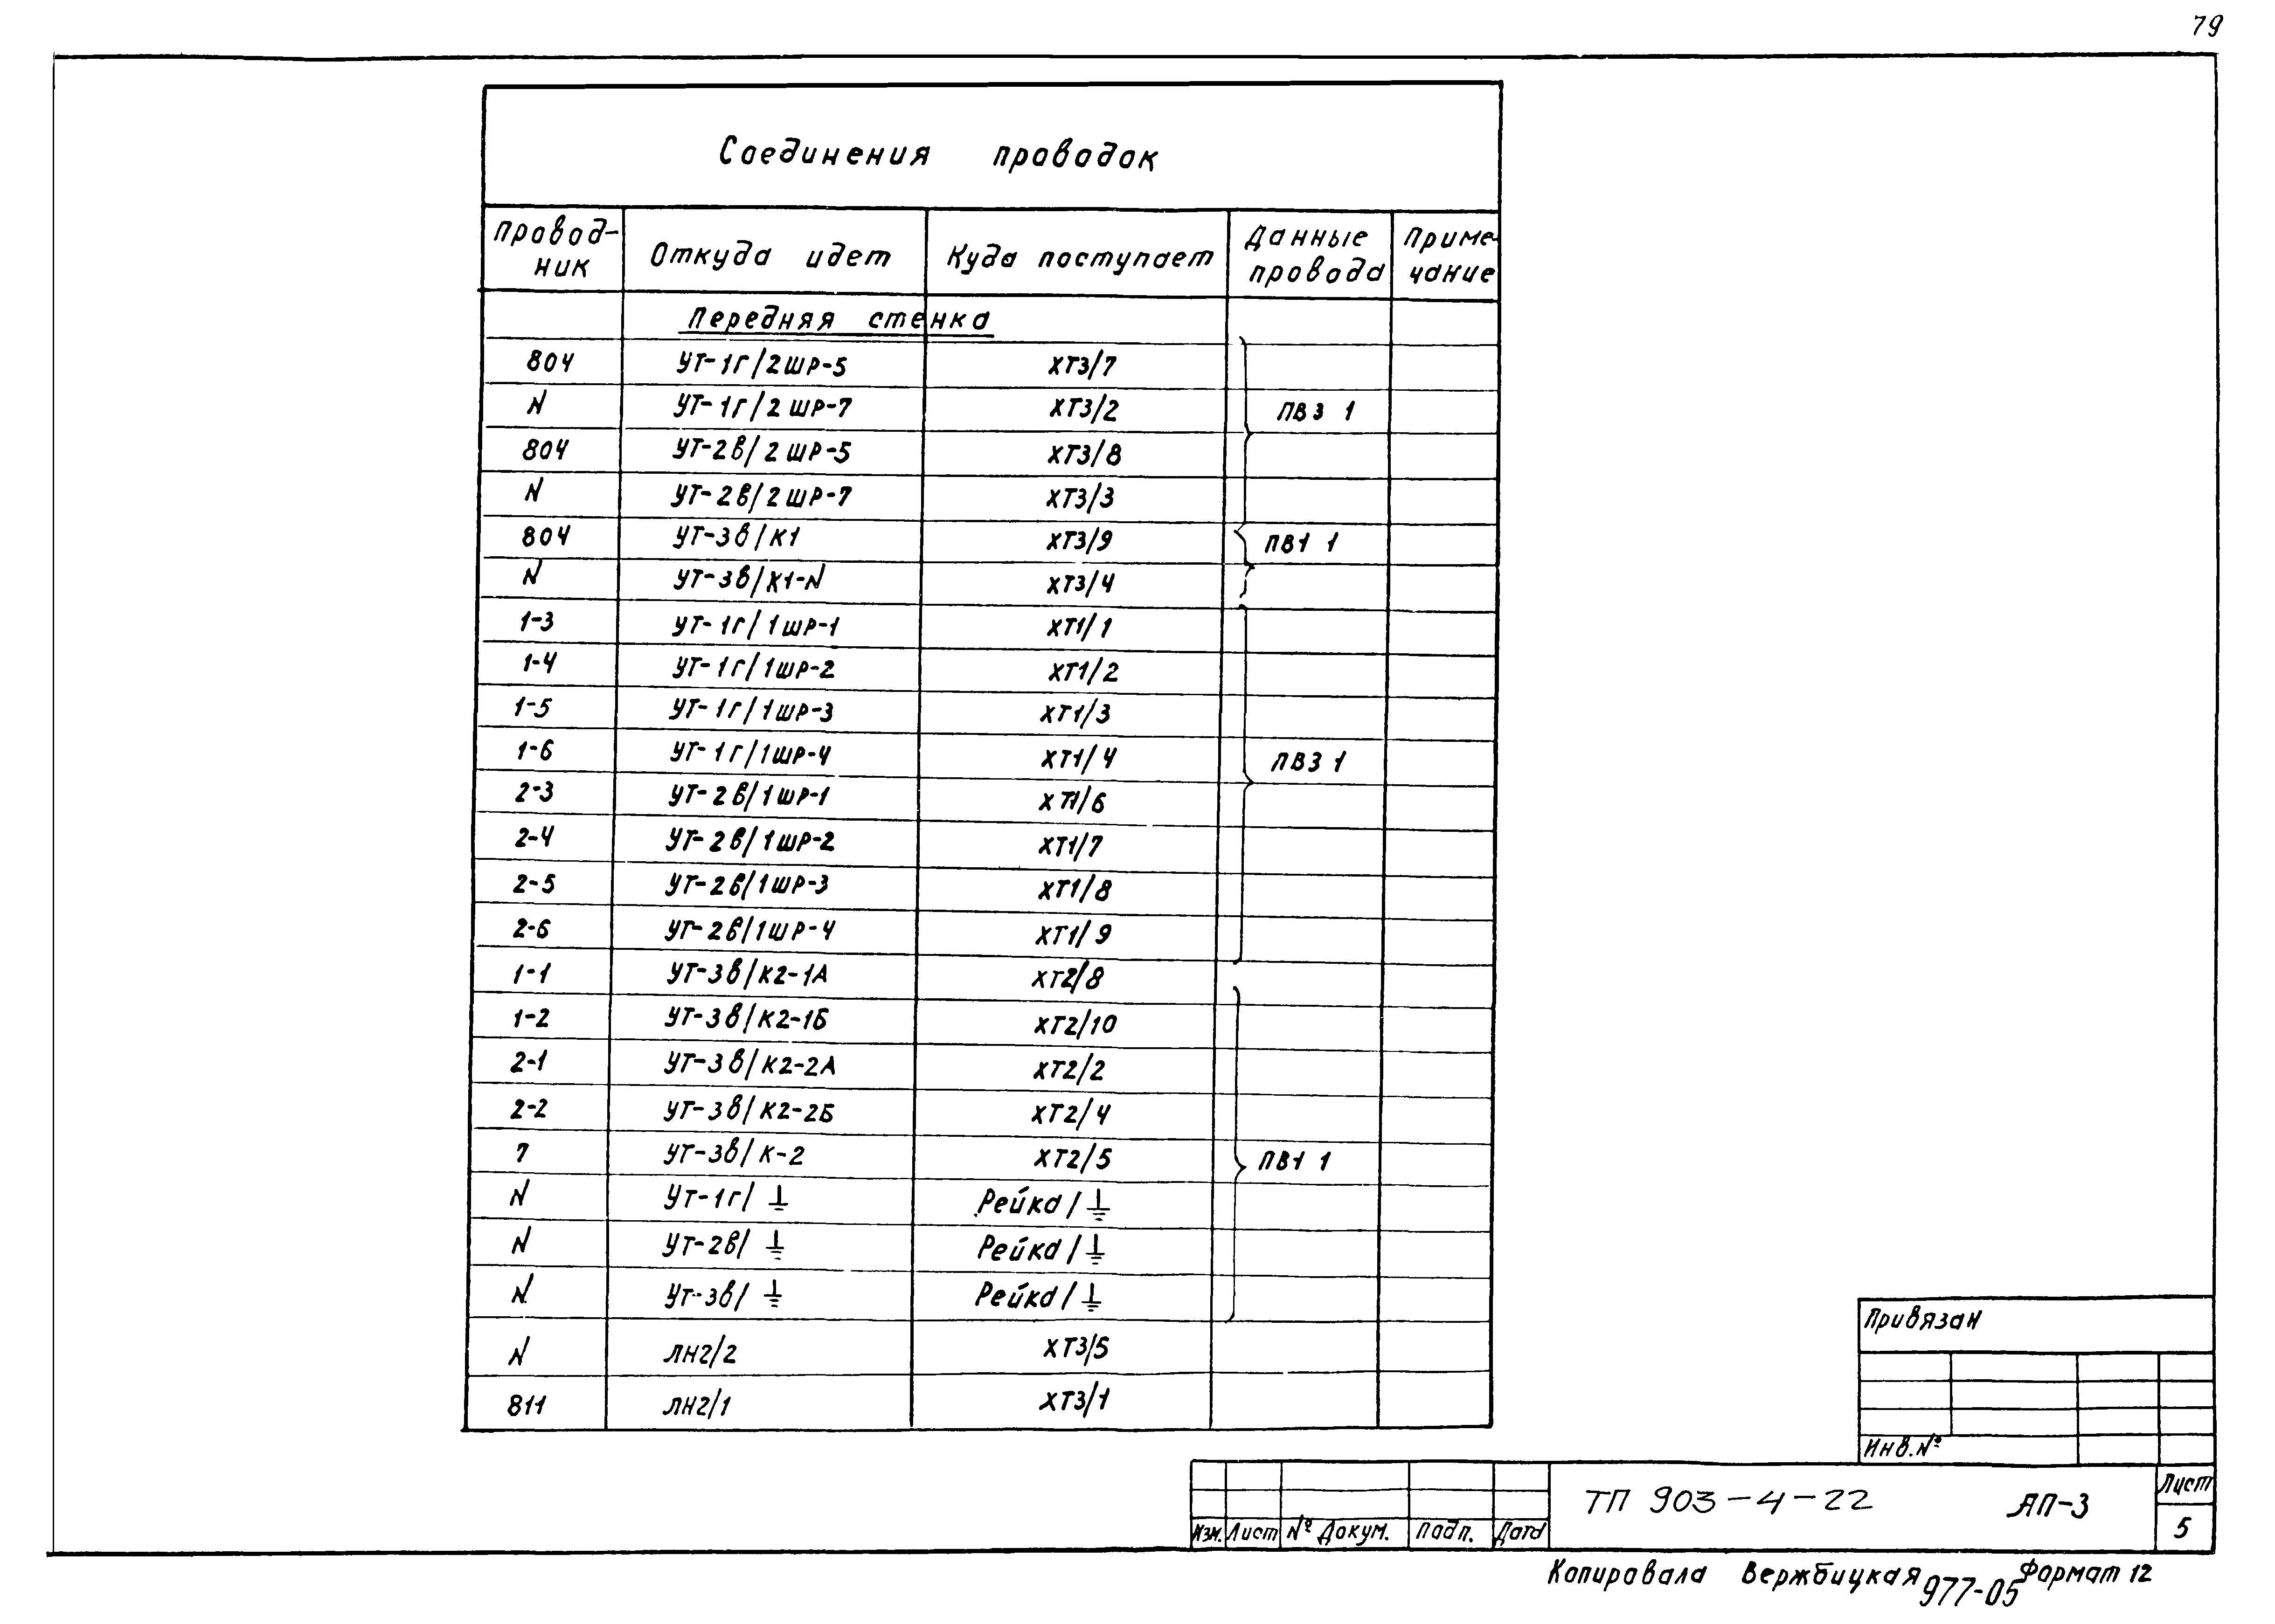 79
Соединения проводок
Провод-
ник
Откуда идет
Куда поступает
Данные
провода
Приме-
чание
Передняя стенка
804 УТ-1г/2ШР-5 ХТ3/7
N УТ-1г/2ШР-7 ХТ3/2 ПВ3 1
804 УТ-2в/2ШР-5 ХТ3/8
N УТ-2в/2ШР-7 ХТ3/3
804 УТ-3в/К1 ХТ3/9 ПВ1 1
N УТ-3в/К1-N ХТ3/4
1-3 УТ-1г/1ШР-1 ХТ1/1
1-4 УТ-1г/1ШР-2 ХТ1/2
1-5 УТ-1г/1ШР-3 ХТ1/3
1-6 УТ-1г/1ШР-4 ХТ1/4 ПВ3 1
2-3 УТ-2в/1ШР-1 ХТ1/6
2-4 УТ-2в/1ШР-2 ХТ1/7
2-5 УТ-2в/1ШР-3 ХТ1/8
2-6 УТ-2в/1ШР-4 ХТ1/9
1-1 УТ-3в/К2-1А ХТ2/8
1-2 УТ-3в/К2-1Б ХТ2/10
2-1 УТ-3в/К2-2А ХТ2/2
2-2 УТ-3в/К2-2Б ХТ2/4
7 УТ-3в/К-2 ХТ2/5 ПВ1 1
N УТ-1г/⏚ Рейка/⏚
N УТ-2в/⏚ Рейка/⏚
N УТ-3в/⏚ Рейка/⏚
N ЛН2/2 ХТ3/5
811 ЛН2/1 ХТ3/1
Привязан
Инв.№
Изм. Лист № Докум. Подп. Дата
ТП 903-4-22 АП-3
Лист
5
Копировала Вержбицкая 977-05 Формат 12